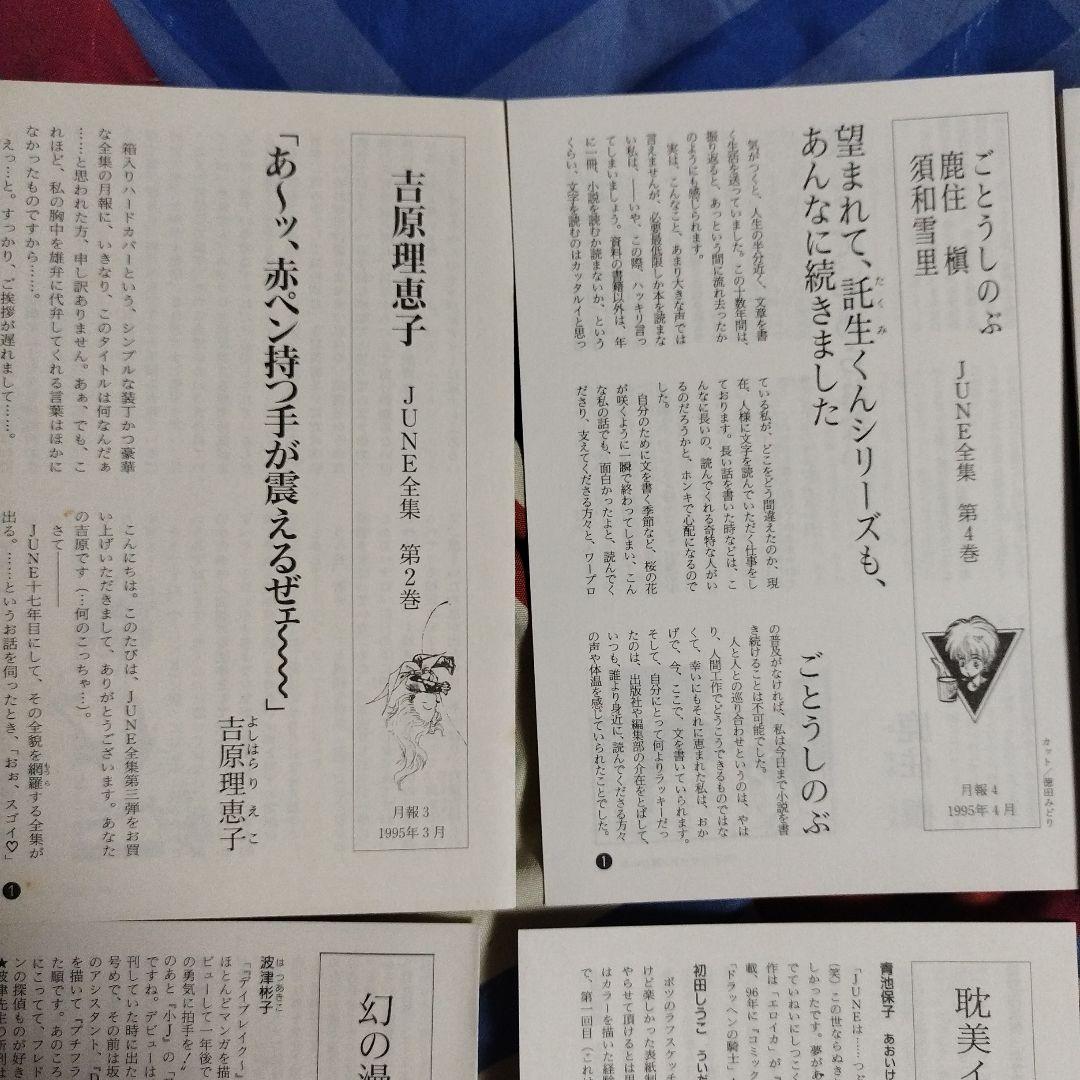 ごとうしのぶ
鹿住　槇
須和雪里
JUNE全集　第4巻
月報4
1995年4月
カット／徳田みどり
望まれて、託生くんシリーズも、
たくみ
あんなに続きました
ごとうしのぶ
気がつくと、人生の半分近く、文章を書
く生活を送っていました。この十数年間は、
振り返ると、あっという間に流れ去ったか
のようにも感じられます。
実は、こんなこと、あまり大きな声では
言えませんが、必要最低限しか本を読まな
い私は、――いや、この際、ハッキリ言っ
てしまいましょう。資料の書籍以外は、年
に一冊、小説を読むか読まないか、という
くらい、文字を読むのはカッタルイと思っ
ている私が、どこをどう間違えたのか、現
在、人様に文字を読んでいただく仕事をし
ております。長い話を書いた時などは、こ
んなに長いの、読んでくれる奇特な人がい
るのだろうかと、ホンキで心配になるので
した。
自分のために文を書く季節など、桜の花
が咲くように一瞬で終わってしまい、こん
な私の話でも、面白かったよと、読んでく
ださり、支えてくださる方々と、ワープロ
の普及がなければ、私は今日まで小説を書
き続けることは不可能でした。
人と人との巡り合わせというのは、やは
り、人間工作でどうこうできるものではな
くて、幸いにもそれに恵まれた私は、おか
げで、今、ここで、文を書いていられます。
そして、自分にとって何よりラッキーだっ
たのは、出版社や編集部の介在をとばして、
いつも、誰より身近に、読んでくださる方々
の声や体温を感じていられたことでした。
1
吉原理恵子
JUNE全集　第2巻
月報3
1995年3月
「あ〜ッ、赤ペン持つ手が震えるぜェ〜〜〜」
よしはらりえこ
吉原理恵子
箱入りハードカバーという、シンプルな装丁かつ豪華
な全集の月報に、いきなり、このタイトルは何なんだぁ
……と思われた方、申し訳ありません。あぁ、でも、こ
れほど、私の胸中を雄弁に代弁してくれる言葉はほかに
なかったものですから……。
えっ…と。すっかり、ご挨拶が遅れまして……。
こんにちは。このたびは、JUNE全集第三弾をお買
い上げいただきまして、ありがとうございます。あなた
の吉原です（…何のこっちゃ…）。
さて――
JUNE十七年目にして、その全貌を網羅する全集が
もうら
出る。……というお話を伺ったとき、「おぉ、スゴイ♡」
1
耽美イ
青池保子　あおいけ
「JUNEは……つぶ
（笑）この世ならぬき
しかったです。夢があ
でていねいにしつこく
作は「エロイカ」が「
載、96年に『コミック
『ドラッヘンの騎士』
初田しうこ　ういだ
ボツのラフスケッチ
けど楽しかった表紙制
やらせて頂けるとは思
はカラーを描いた経験
で、第一回目（これは
幻の漫
はつあきこ
波津彬子
「『デイブレイク〜』
ほとんどマンガを描
ビューして一年後で
の勇気に拍手を‼
のあと『小J』の「
ですね。デビューは
刊していた時に出た
号めで、その前は坂
のアシスタント、『D
を描いて『プチフラ
た順です。あのころ
にこってて、フレド
ンの探偵ものが好き
★波津先生の新刊は